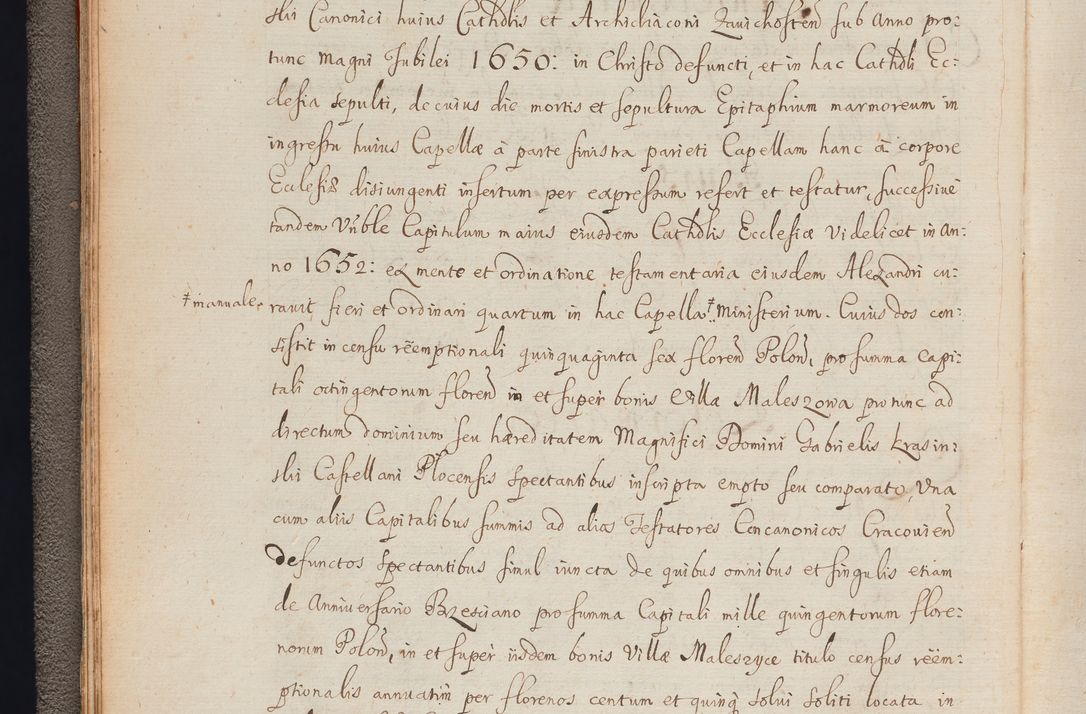 skii Canonici huius Cathdlis et Archidiaconi Zauichosten̄ sub Anno pro:
tunc Magni Jubilei 1650: in Christo defuncti, et in hac Cathdli Ec:
clesia sepulti, de cuius die mortis et sepultura Epitaphium marmoreum in
ingressu huius Capellæ à parte sinistra parieti Capellam hanc à corpore
Ecclesiæ disiungenti insertum per expressum refert et testatur, successiue
tandem Vn̄ble Capitulum maius eiusdem Cathdlis Ecclesiæ Videlicet in An:
no 1652: ex mente et ordinatione testamentaria eiusdem Alexandri cu:
‡ manuale. rauit fieri et ordinari quartum in hac Capella ‡ Ministerium. Cuius dos con:
sistit in censu rëemptionali quinquaginta sex floren̄ Polon̄, pro summa capi:
tali octingentorum floren̄ in et super bonis Villæ Maleszowa pronunc ad
directum dominium seu hæreditatem Magnifici Domini Gabrielis Krasin:
skii Castellani Plocensis spectantibus inscripta empto seu comparato, Vna
cum aliis Capitalibus summis ad alios Testatores Concanonicos Cracouien̄
defunctos spectantibus simul iuncta de quibus omnibus et singulis etiam
de Anniversario Brzesciano pro summa Capitali mille quingentorum flore:
norum Polon̄, in et super iisdem bonis Villæ Maleszyce titulo census rëem:
ptionalis annuatim per florenos centum et quinq̨ solui soliti locata in